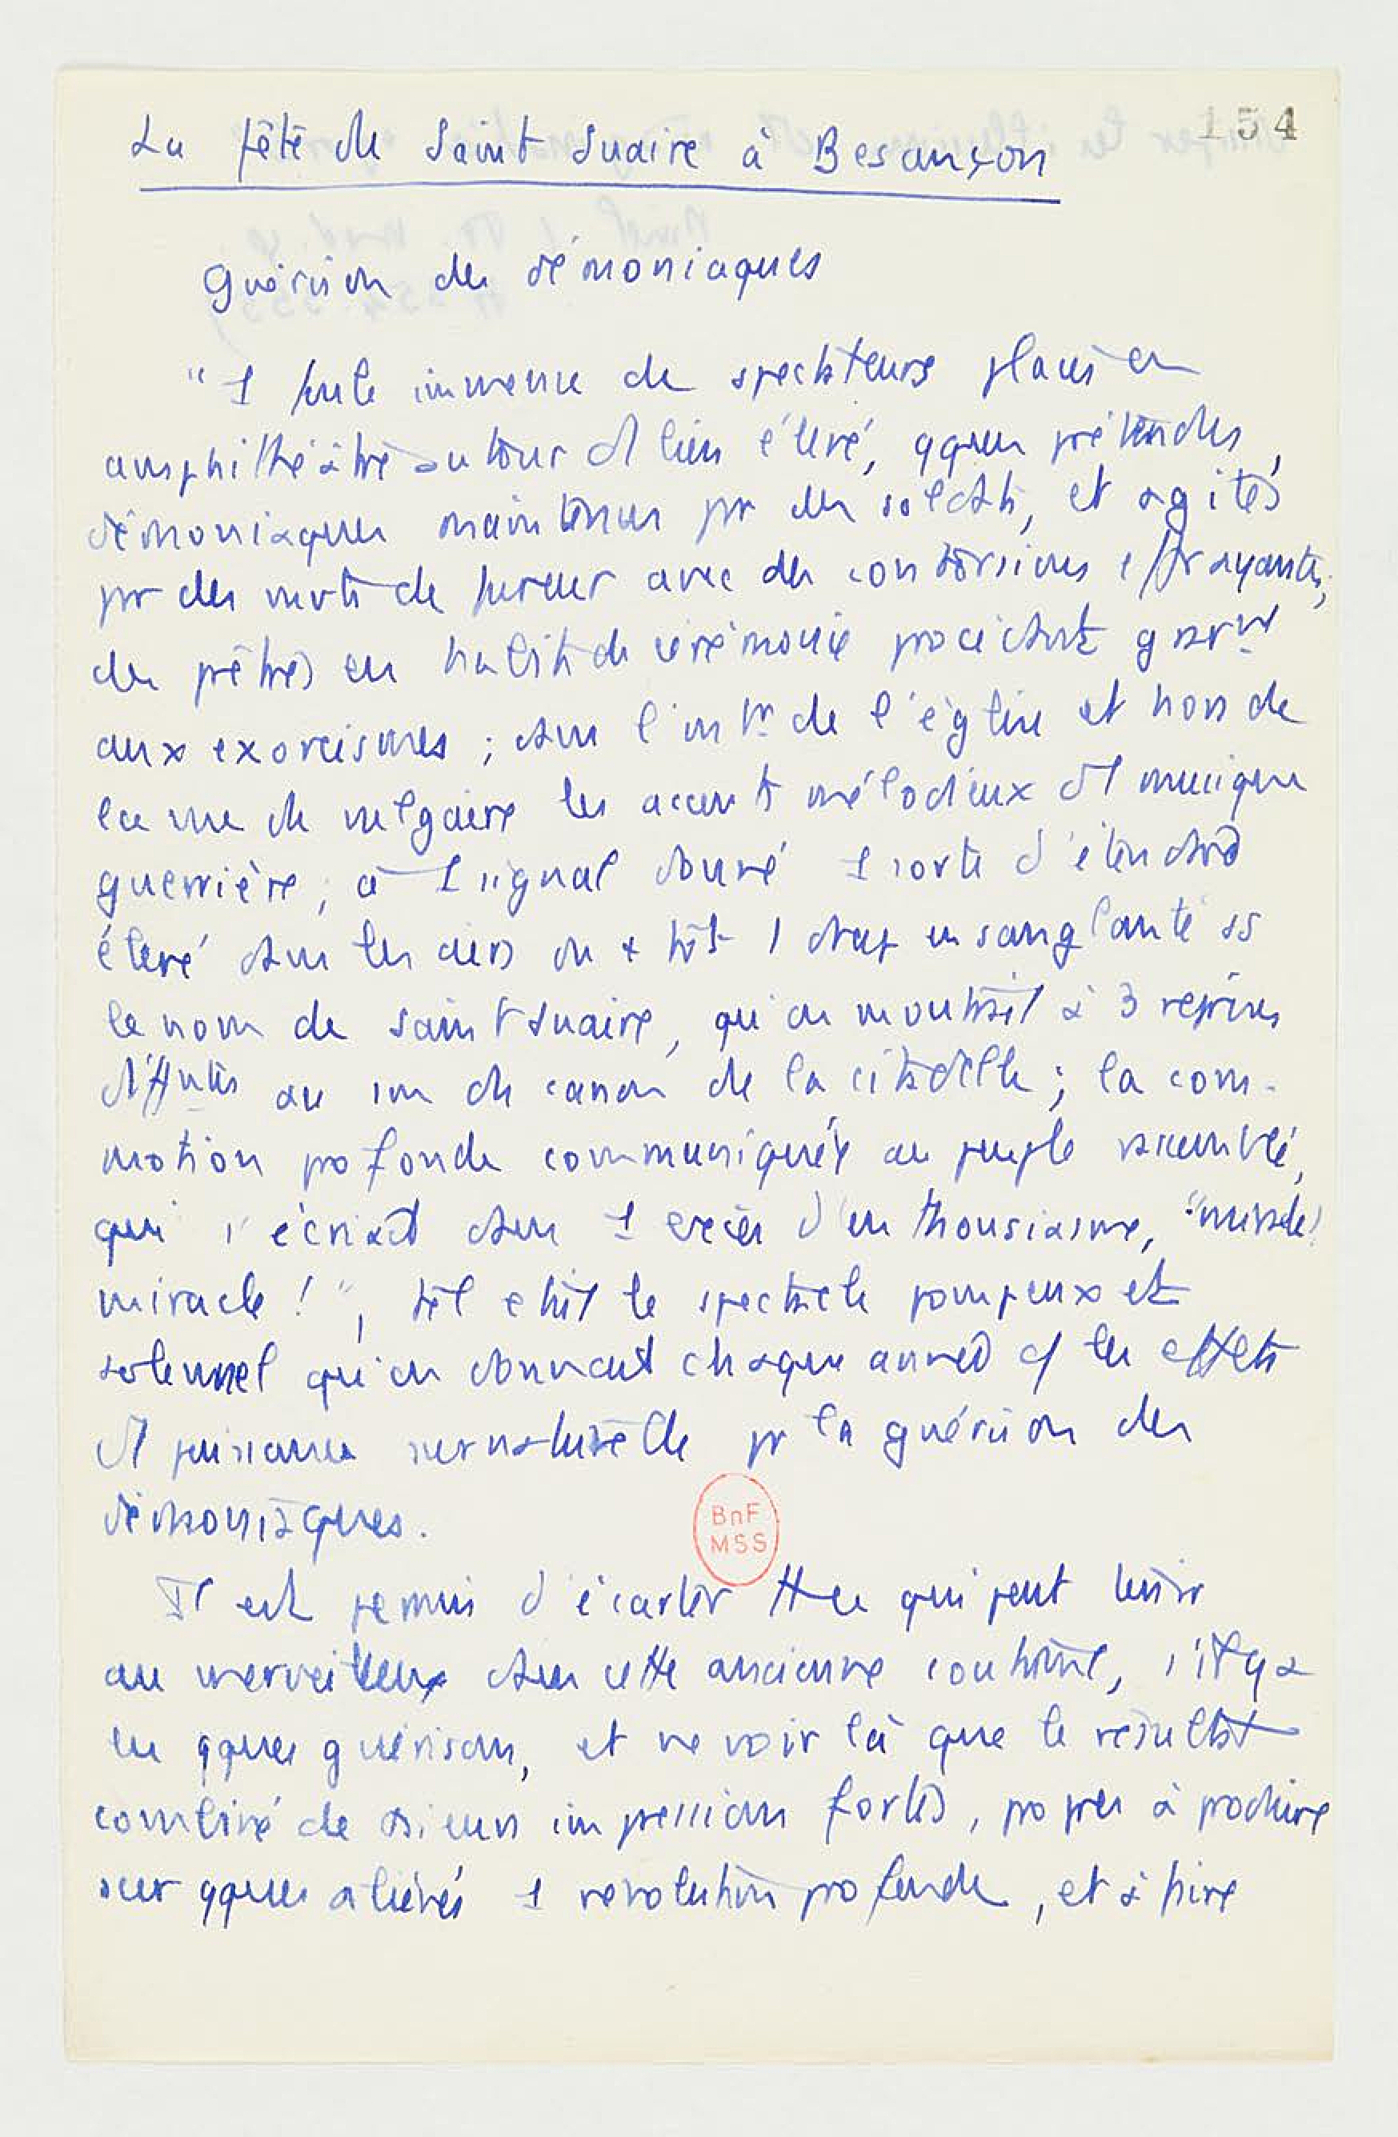 154
La fête de Saint Suaire à Besançon
Guérison des démoniaques
"1 foule immense de spectateurs placés en
amphithéâtre autour d'1 lieu élevé, qques prétendus
démoniaques maintenus pr des soldats, et agités
pr des mvts de fureur avec des contorsions effrayantes;
des prêtres en habits de cérémonie procédant gravt
aux exorcismes ; dans l'intr de l'église et hors de
la vue du vulgaire les accents mélodieux d'1 musique
guerrière ; à 1 signal donné 1 sorte d'étendard
élevé dans les airs ou + tôt 1 drap ensanglanté ss
le nom de saint suaire, qu'on montrait à 3 reprises
difftes au son du canon de la citadelle ; la com-
motion profonde communiquée au peuple assemblé,
qui s'écriait dans 1 excès d'enthousiasme, "miracle!
miracle ! ", tel était le spectacle pompeux et
solennel qu'on donnait chaque année cf les effets
d'1 puissance surnaturelle pr la guérison des
démoniaques.
BnF
MSS
Il est permis d'écarter tt ce qui peut tenir
au merveilleux dans cette ancienne coutume, s'il y a
eu qques guérisons, et ne voir là que le résultat
combiné de plusieurs impressions fortes, propres à produire
sur qques aliénés 1 révolution profonde, et à faire